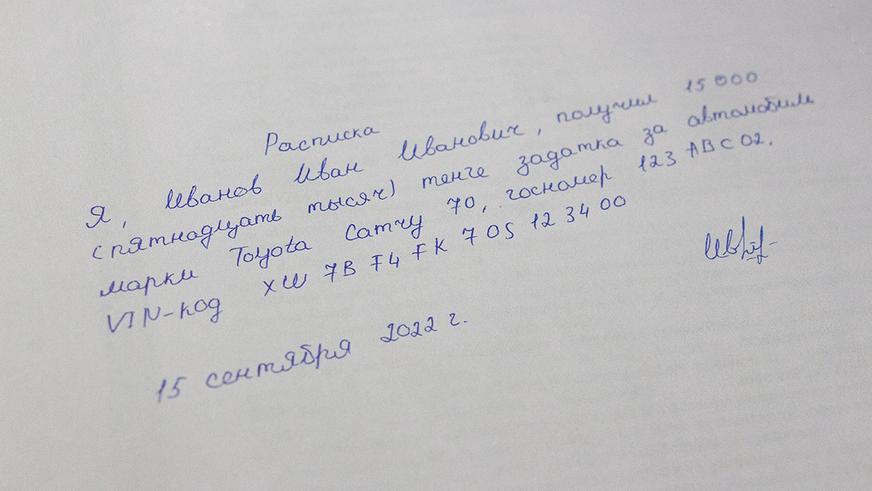 Расписка
Я, Иванов Иван Иванович, получил 15000
(пятнадцать тысяч) тенге задатка за автомобиль
марки Toyota Camry 70, госномер 123 ABC 02.
VIN-код XW 7B F4 FK 70S 12 34 00
15 сентября 2022 г.